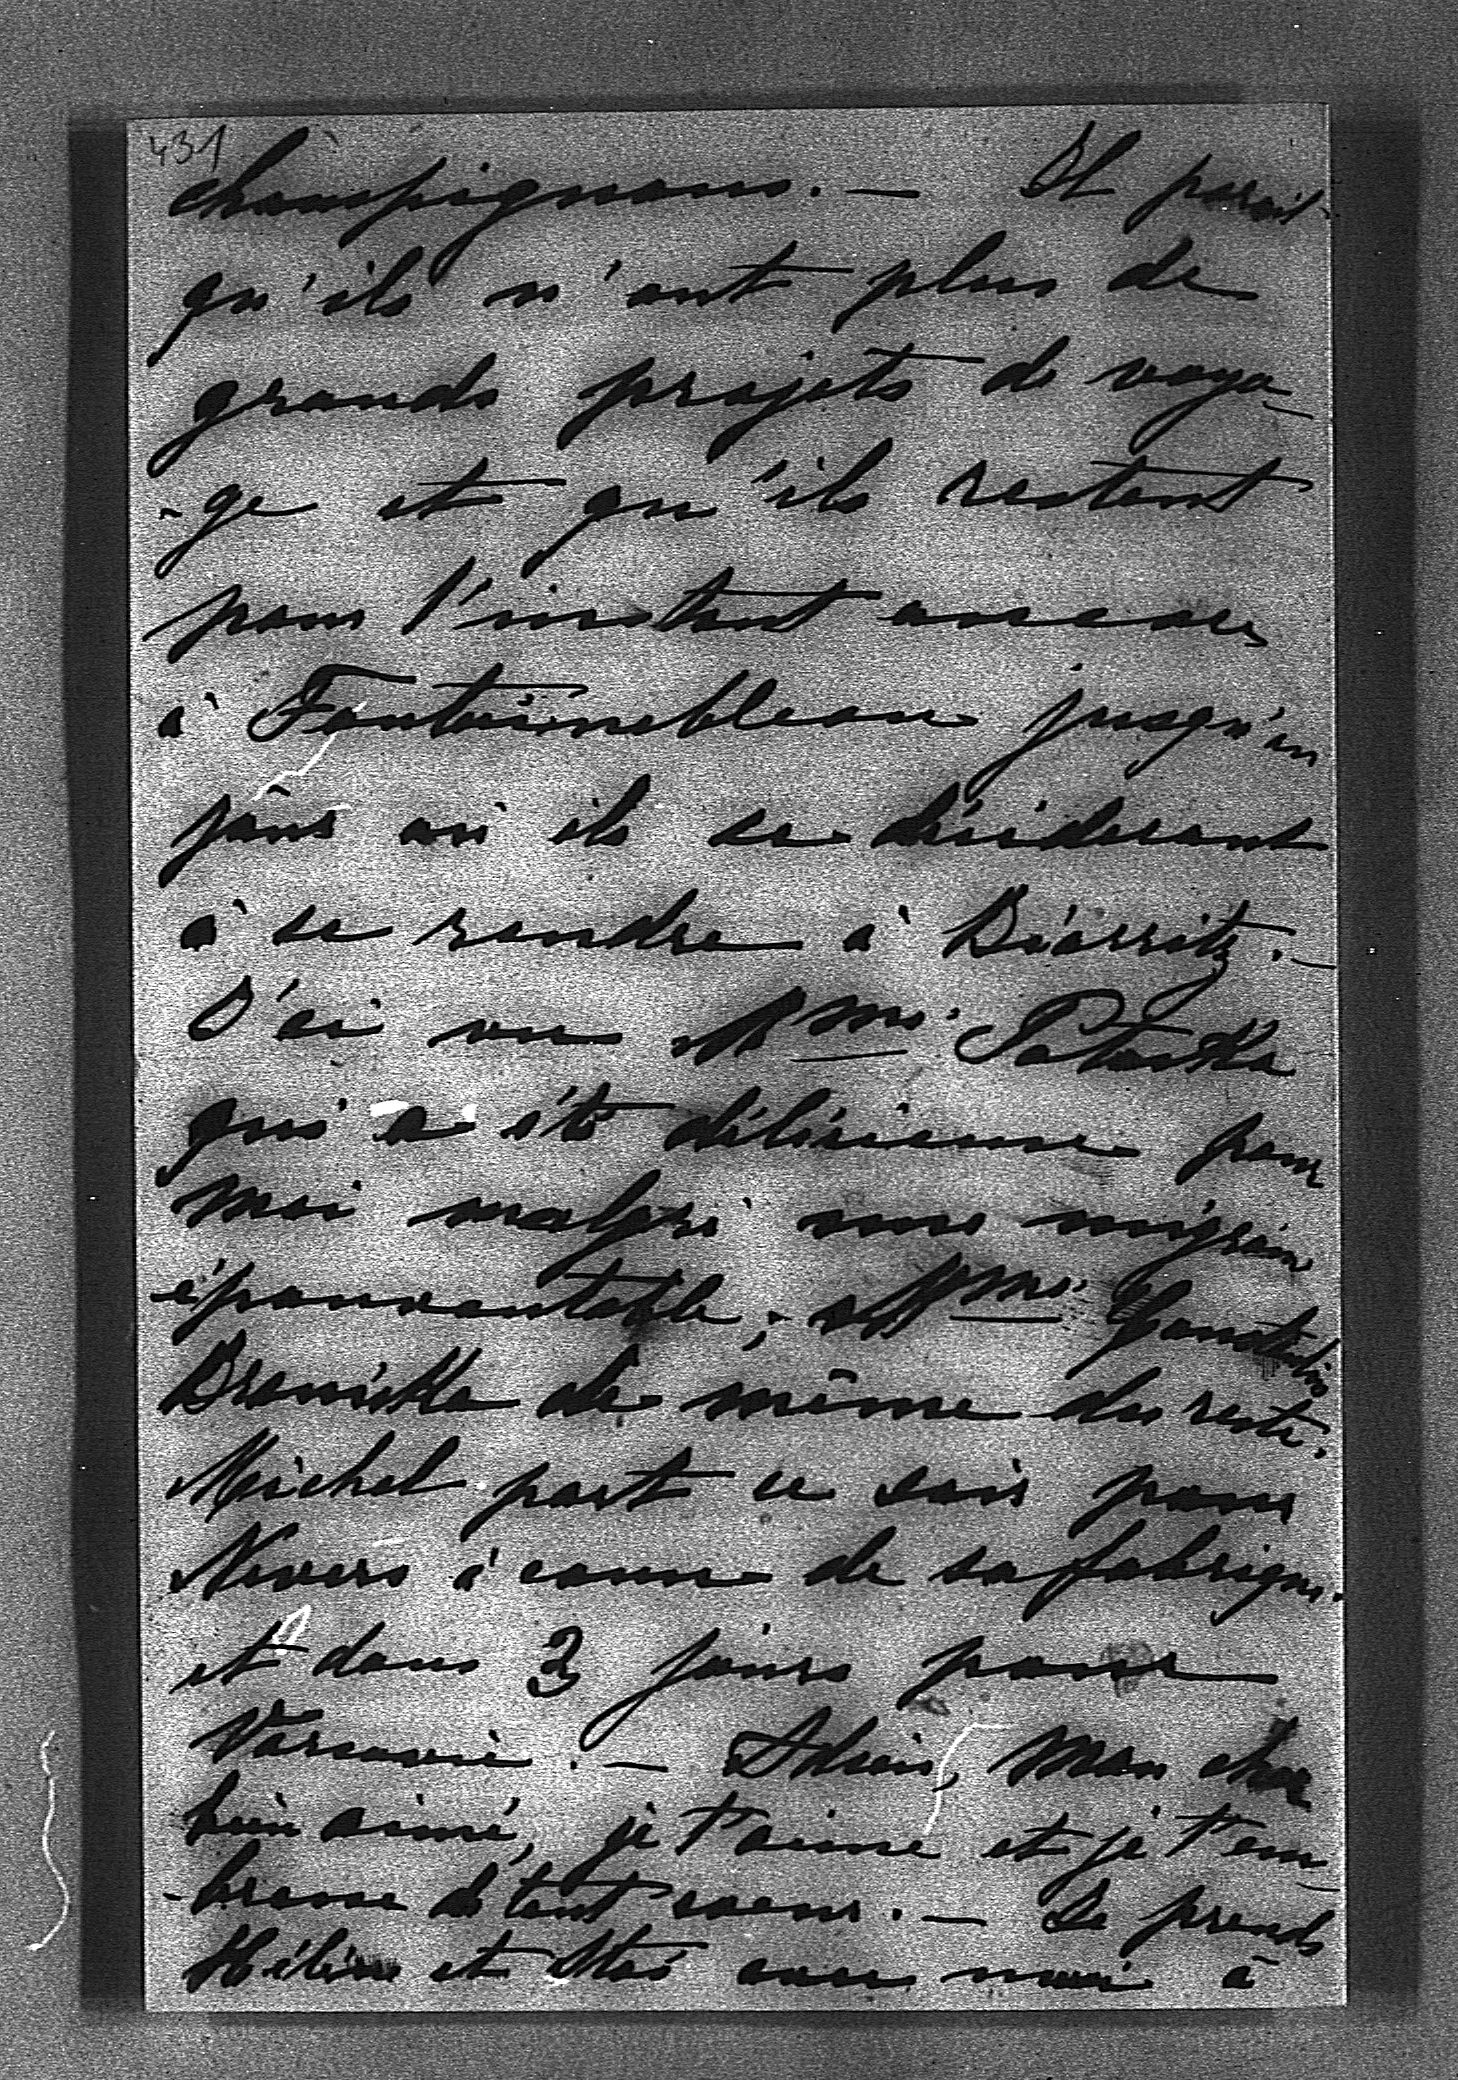 431
champignons. — Il parait
qu'ils n'ont plus de
grands projets de voya-
-ge et qu'ils restent
pour l'instant encore
à Fontainebleau jusqu'en
jour où ils se décideront
à se rendre à Biarritz. —
J'ai vu Mme Potocka
qui a été délicieuse pour
moi malgré une migraine
épouvantable, Mme Constantin
Branicka de même du reste.
Michel part ce soir pour
Nevers à cause de sa fabrique.
et dans 3 jours pour
Varsovie. — Adieu, mon cher
bien aimé, je t'aime et je t'em-
-brasse de tout coeur. — Je prends
Hélène et Stas avec moi à